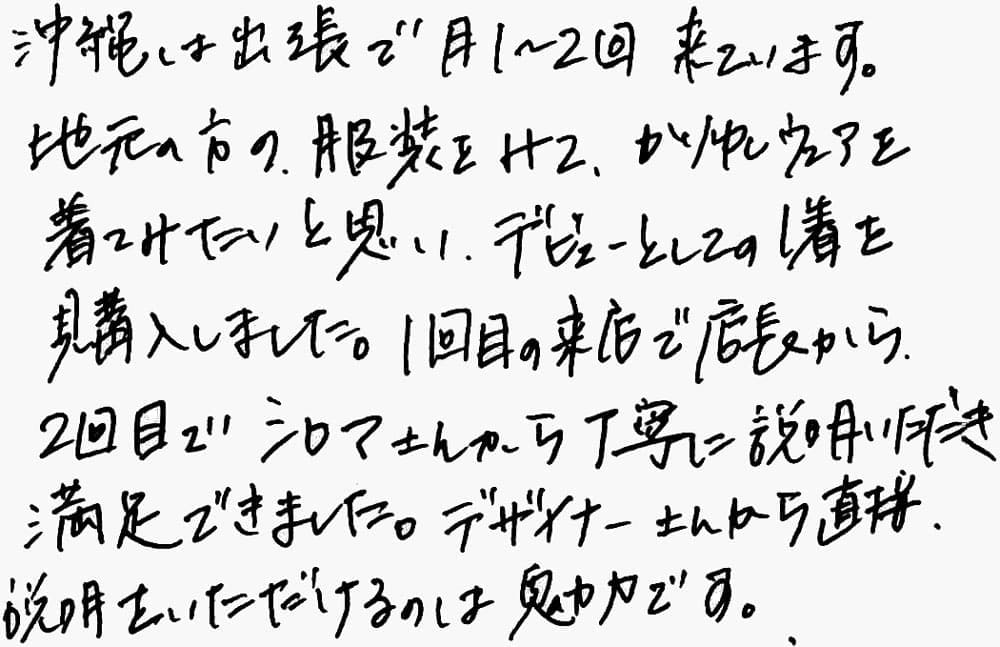 沖縄は出張で月1~2回来ています。
地元の方の、服装をみて、かりゆしウェアを
着てみたいと思い、デビューとしての1着を
購入しました。1回目の来店で店長から、
2回目でシロマさんから丁寧に説明いただき
満足できました。デザイナーさんから直接、
説明をいただけるのは魅力です。